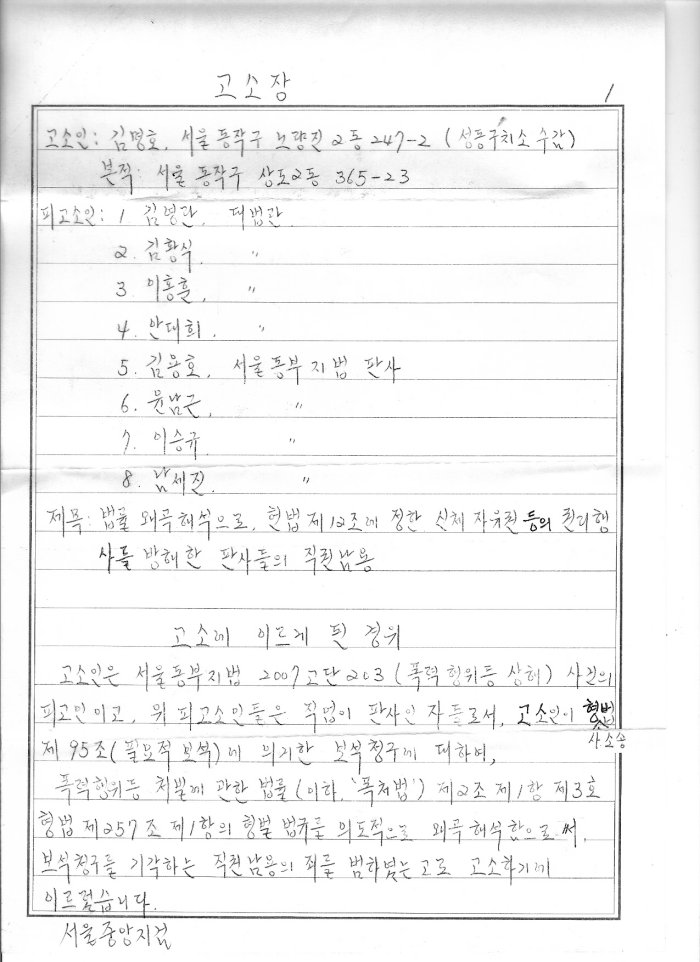 고소장
1
고소인: 김명호, 서울 동작구 노량진 2동 247-2 (성동구치소 수감)
본적: 서울 동작구 상도2동 365-23
피고소인: 1. 김영란, 대법관.
2. 김황식, "
3. 이홍훈, "
4. 안대희, "
5. 김용호, 서울동부지법 판사
6. 윤남근, "
7. 이승규, "
8. 남세진, "
제목: 법률 왜곡해석으로, 헌법 제12조에 정한 신체 자유권 등의 권리행
사를 방해한 판사들의 직권남용
고소에 이르게 된 경위
고소인은 서울동부지법 2007고단203 (폭력행위등 상해) 사건의
피고인이고, 위 피고소인들은 직업이 판사인 자들로서, 고소인이 형
사소송
제 95조(필요적 보석)에 의거한 보석청구에 대하여,
폭력행위등 처벌에 관한 법률(이하, '폭처법') 제2조 제1항 제3호
형법 제257조 제1항의 형벌 법규를 의도적으로 왜곡해석함으로써,
보석청구를 기각하는 직권남용의 죄를 범하였는고로 고소하기에
이르렀습니다.
서울중앙지검